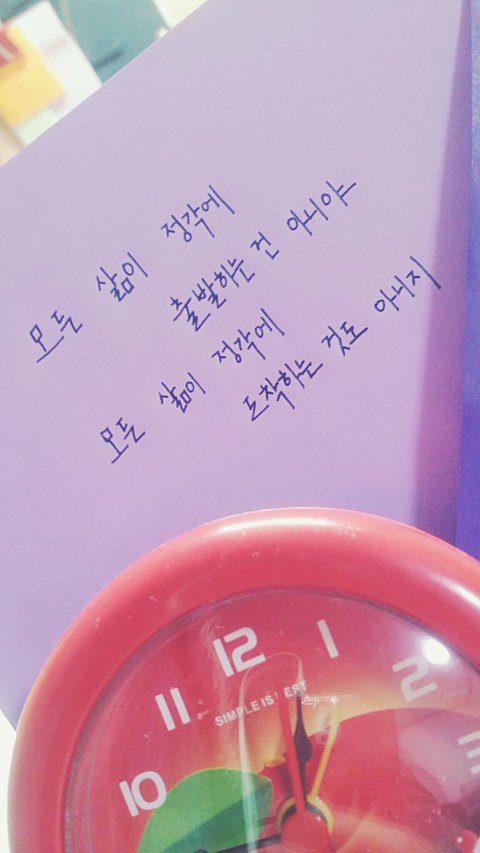 모든 삶이 정각에
출발하는 건 아니야
모든 삶이 정각에
도착하는 것도 아니지
12
1
11
2
SIMPLE IS EST
10
3